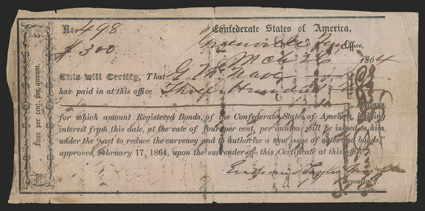 No. 498
Confederate States of America,
$300
Office,
Mch 26 1864
This will Certify, That
has paid in at this office Three Hundred
Dollars
for which amount Registered Bonds, of the Confederate States of America, bearing
interest from this date, at the rate of four per cent. per annum, will be issued to him
under the "act to reduce the currency and to authorize a new issue of notes and bonds"
approved February 17, 1864, upon the surrender of this Certificate at this office.
Depositary.
Four per cent. per annum.